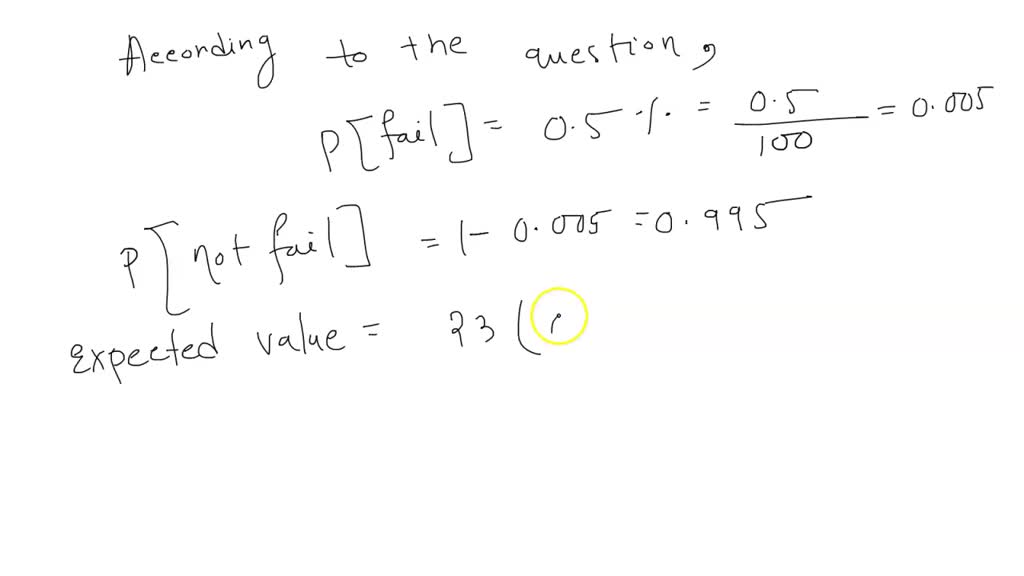 According to the question,
P[fail] = 0.5 % = 0.5/100 = 0.005
P[not fail] = 1 - 0.005 = 0.995
Expected value = 23 (